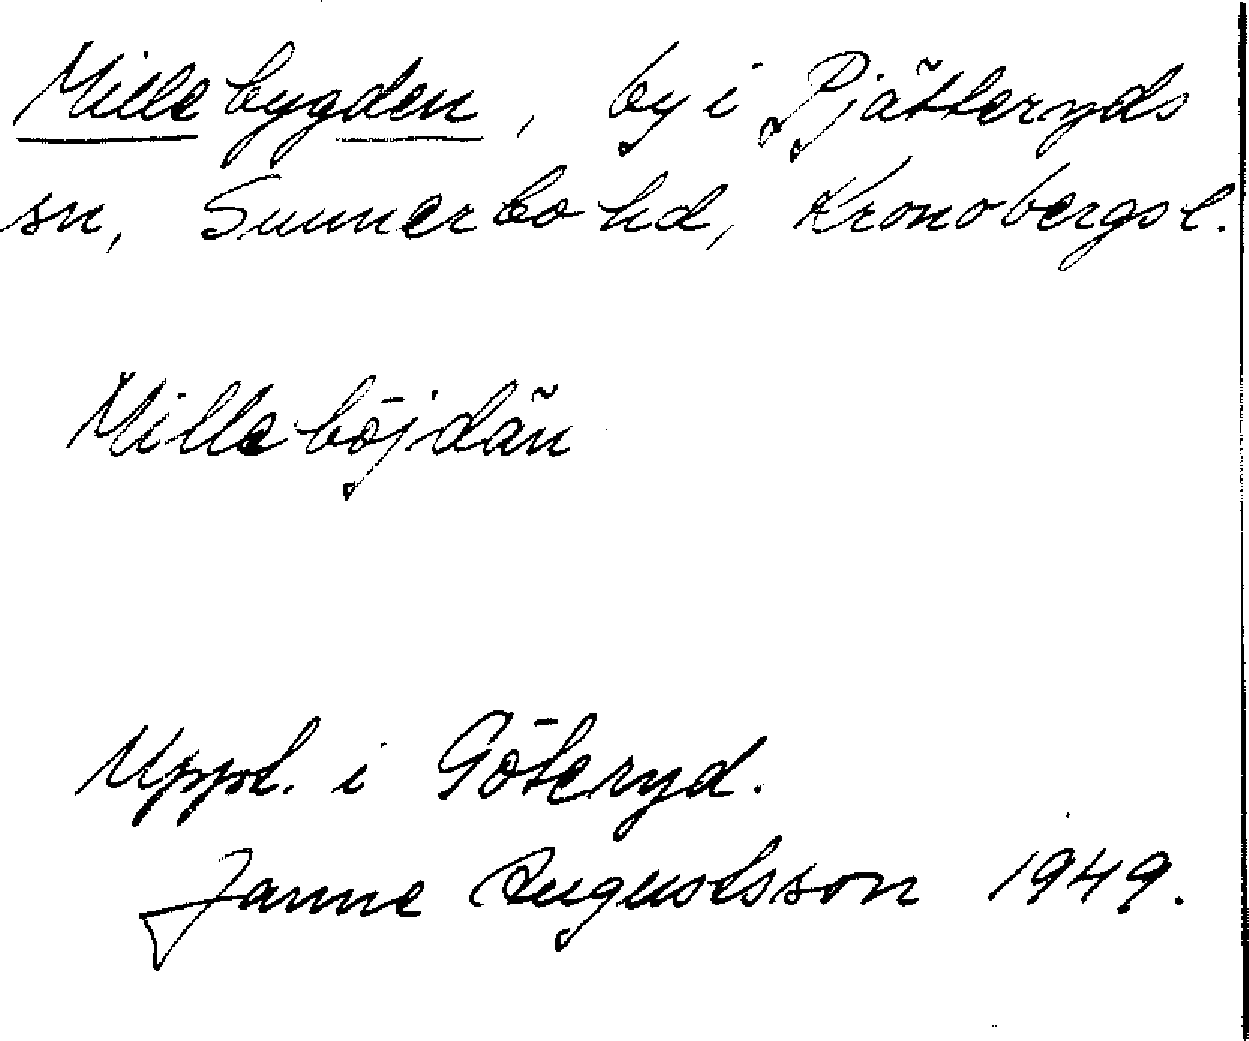 Millebygden, by i Pjätteryds
sn, Sunnerbo hd, Kronobergs l.
Milleböjdän
Uppt. i Göteryd.
Janne Augustsson 1949.